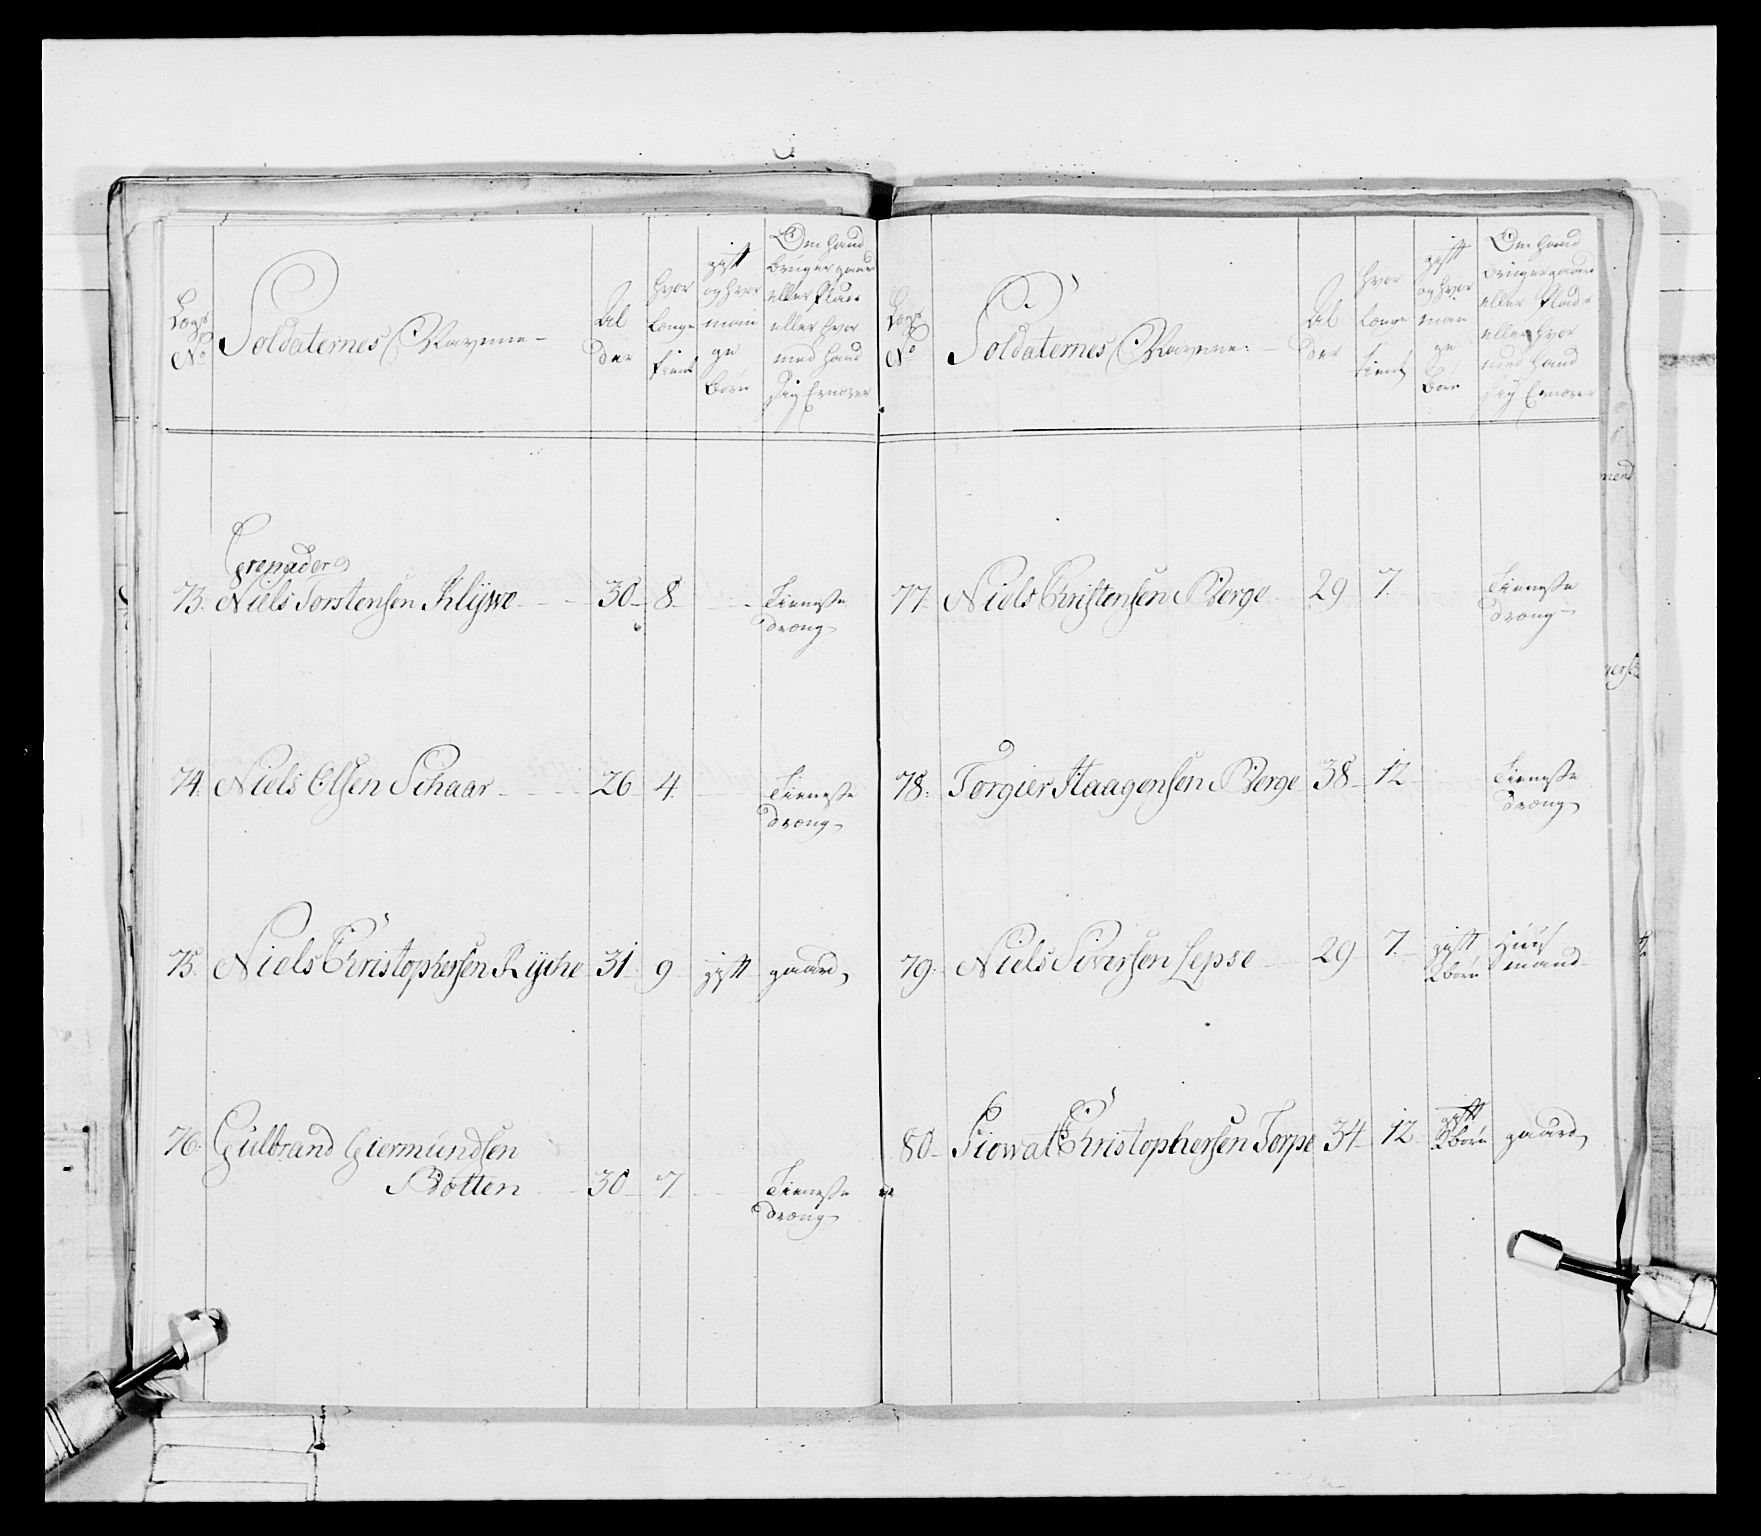 Lægs No
Soldaternes Navne
Al der
hvor længe tient
gift og hvor man ge børn
Om hand bruger gaard eller Plads eller hvor med hand sig Ernærer
Grenader
73. Niels Torstensen Klÿwe 30 8 Tieneste
dræng
74. Niels Olsen Schaar 26 4 Tieneste
dræng
75. Niels Christophersen Rÿche 31 9 gift gaard
76. Gulbrand Giermundsen
Botten 30 7 Tieneste
dræng
Lægs No
Soldaternes Navne
Al der
hvor længe tient
gift og hvor man ge børn
Om hand bruger gaard eller Plads eller hvor med hand sig Ernærer
77. Niels Christensen Berge 29 7 Tieneste
dræng
78. Torgier Haagensen Berge 38 12 Tieneste
dræng
79. Niels Siversen Lepsø 29 7 gift Huus
2 børn mand
80 Siowat Christophersen Torpe 34 12 gift
2 børn gaard